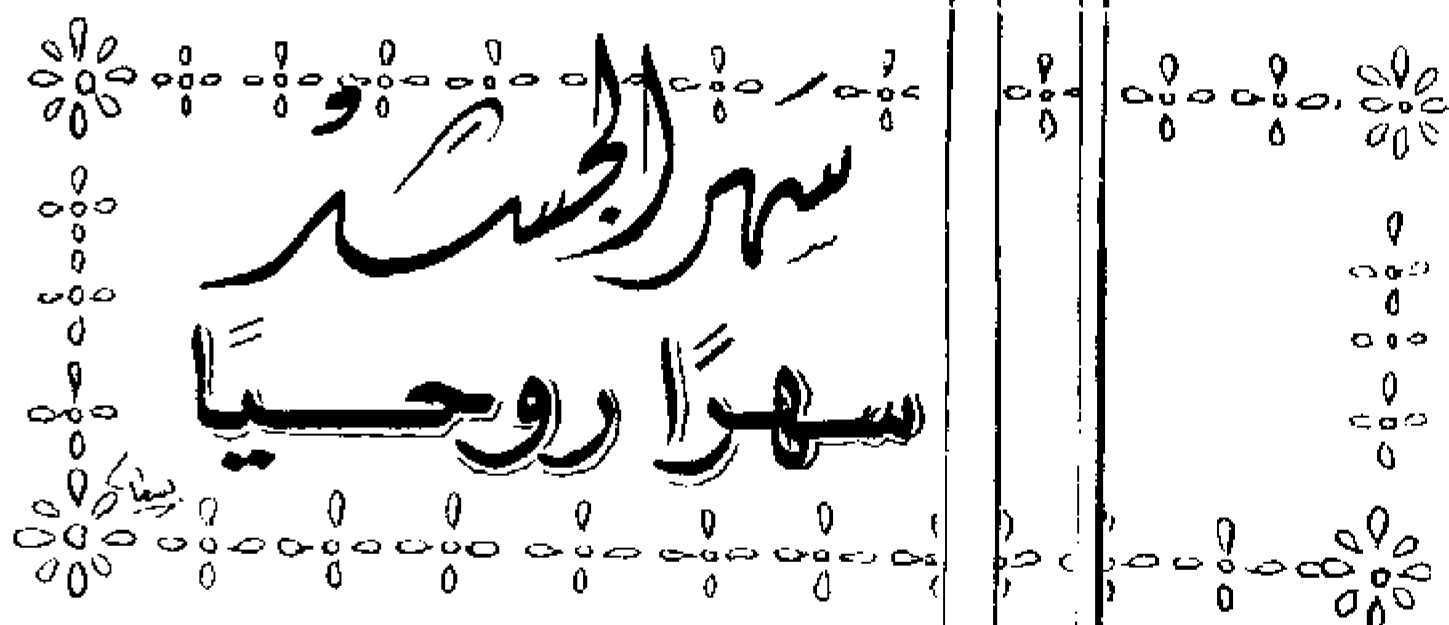 سَهر الجسدُ
سهرًا روحيًا